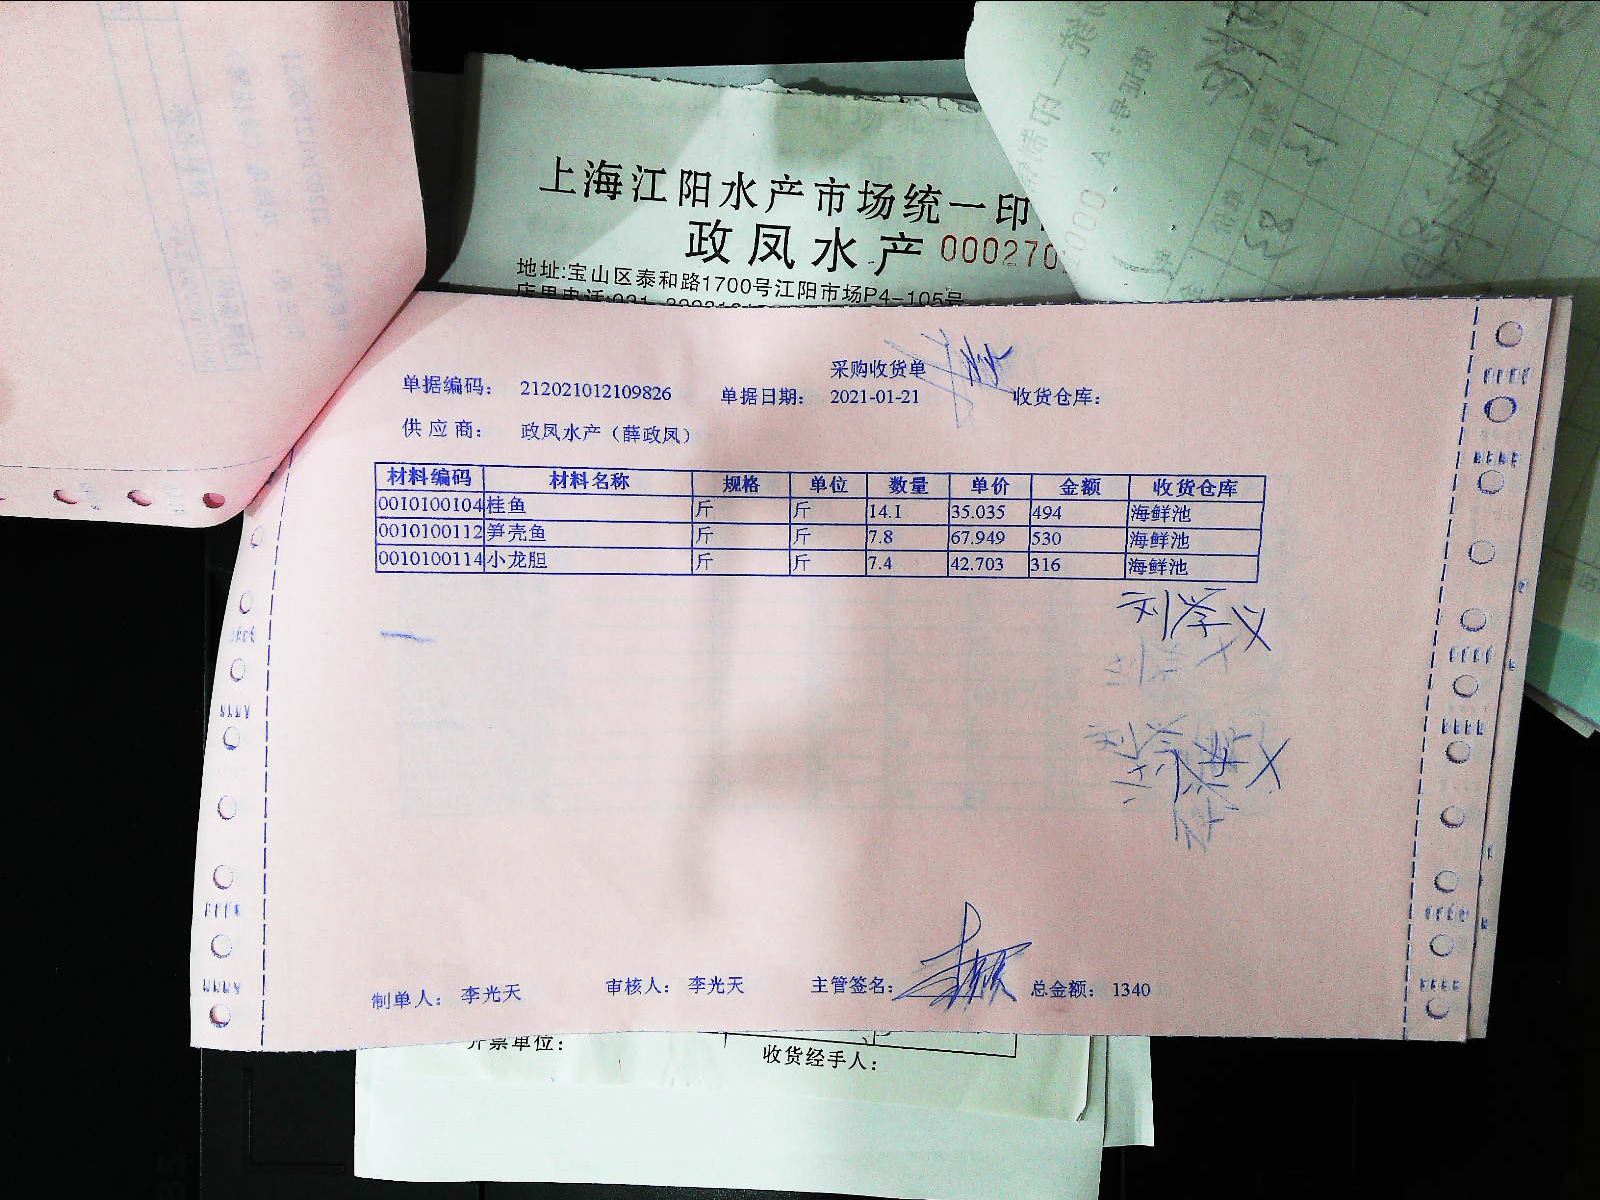 上海江阳水产市场统一印
政凤水产 000270
地址:宝山区泰和路1700号江阳市场P4-105号
采购收货单
单据编码: 212021012109826 单据日期: 2021-01-21 收货仓库:
供应商: 政凤水产（薛政凤）
材料编码 材料名称 规格 单位 数量 单价 金额 收货仓库
0010100104 桂鱼 斤 斤 14.1 35.035 494 海鲜池
0010100112 笋壳鱼 斤 斤 7.8 67.949 530 海鲜池
0010100114 小龙胆 斤 斤 7.4 42.703 316 海鲜池
刘学义
制单人: 李光天 审核人: 李光天 主管签名: 总金额: 1340
开票单位:
收货经手人: